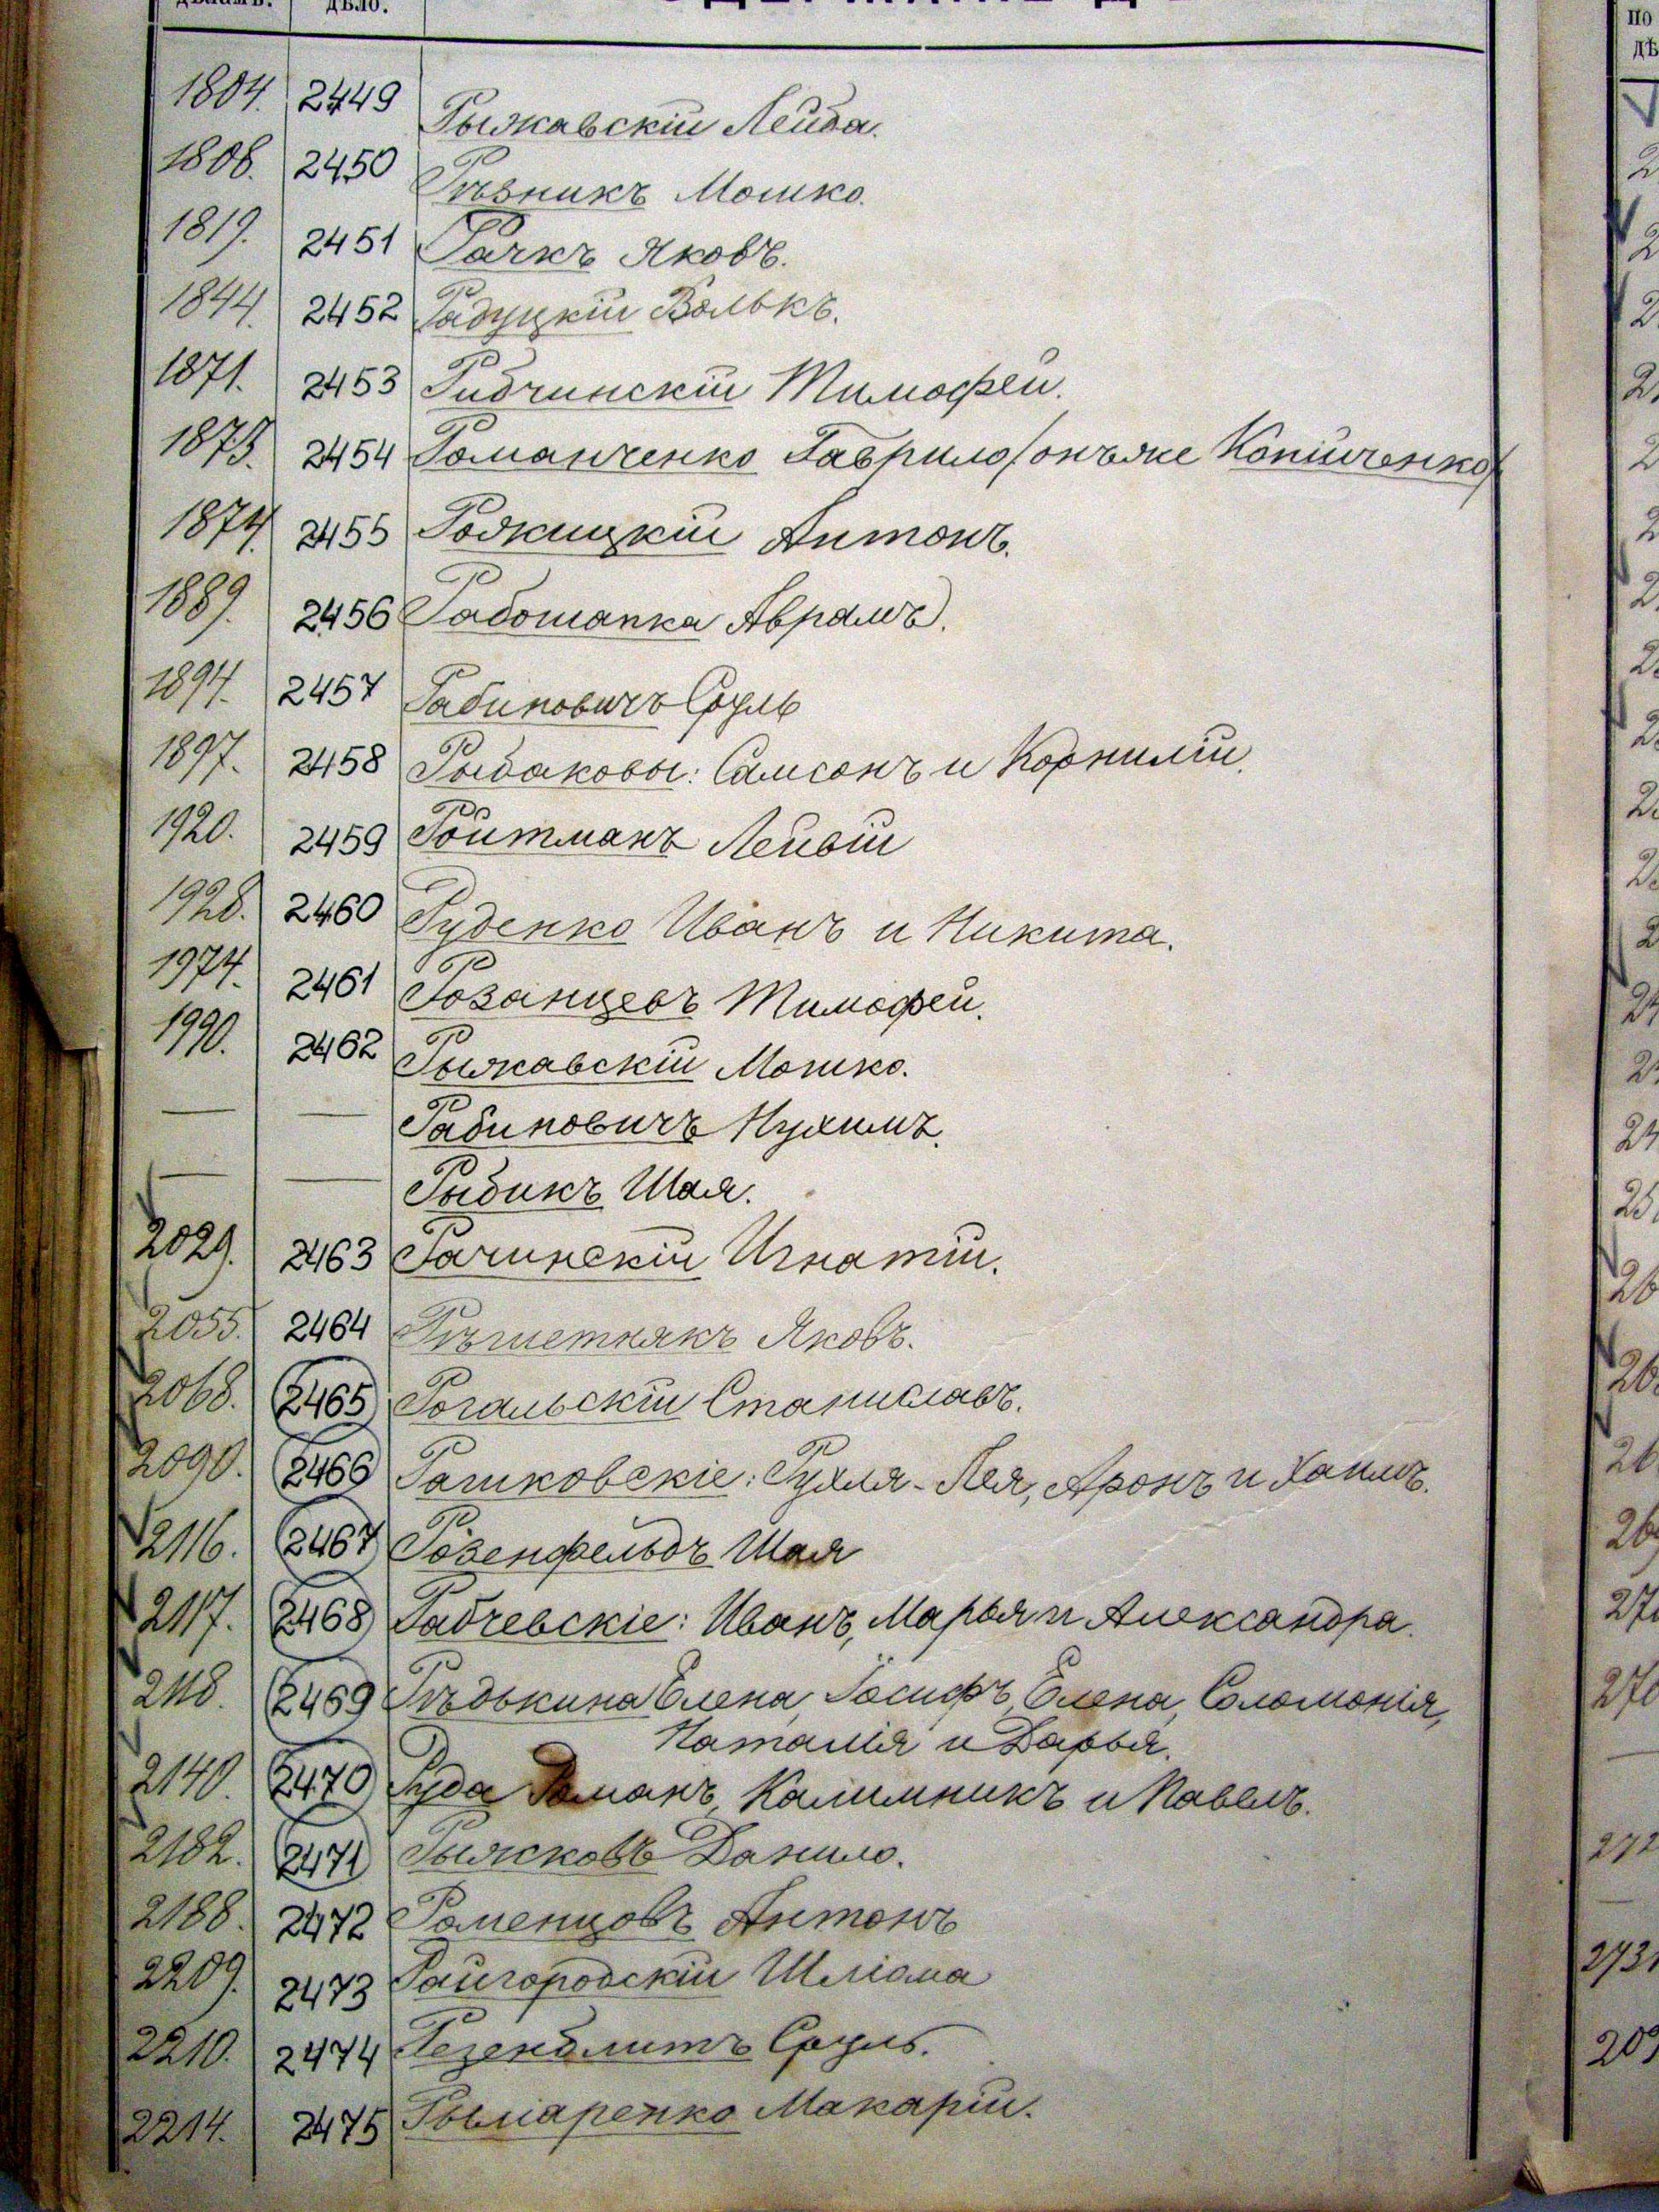 дѣло.
1804. 2449 Рыжавскій Лейба.
1808. 2450 Рѣзникъ Мошко.
1819. 2451 Рачкъ Яковъ.
1844. 2452 Радуцкій Волькъ.
1871. 2453 Рибчинскій Тимофей.
1873. 2454 Романченко Гаврило/онъ же Копійченко/
1874. 2455 Рожицкій Антонъ.
1889. 2456 Рабошапка Аврамъ.
1894. 2457 Рабиновичъ Сруль
1897. 2458 Рыбаковы: Самсонъ и Корнилій.
1920. 2459 Ройтманъ Лейбій
1928. 2460 Руденко Иванъ и Никита.
1974. 2461 Розанцевъ Тимофей.
1990. 2462 Рыжавскій Мошко.
— — Рабиновичъ Нухимъ.
— — Рыбикъ Шая.
2029. 2463 Рачинскій Игнатій.
2055. 2464 Рѣшетнякъ Яковъ.
2068. 2465 Рогальскій Станиславъ.
2090. 2466 Рашковскіе: Рухля-Лея, Аронъ и Хаимъ.
2116. 2467 Розенфельдъ Шая
2117. 2468 Рабчевскіе: Иванъ, Марья и Александра.
2118. 2469 Рѣдькина Елена, Іосифъ, Елена, Соломонія,
Наталія и Дарья.
2140. 2470 Руда Романъ, Калимникъ и Павелъ.
2182. 2471 Рыжковъ Данило.
2188. 2472 Роменцовъ Антонъ
2209. 2473 Райгородскій Шліома
2210. 2474 Резенблитъ Сруль.
2214. 2475 Рымаренко Макарій.